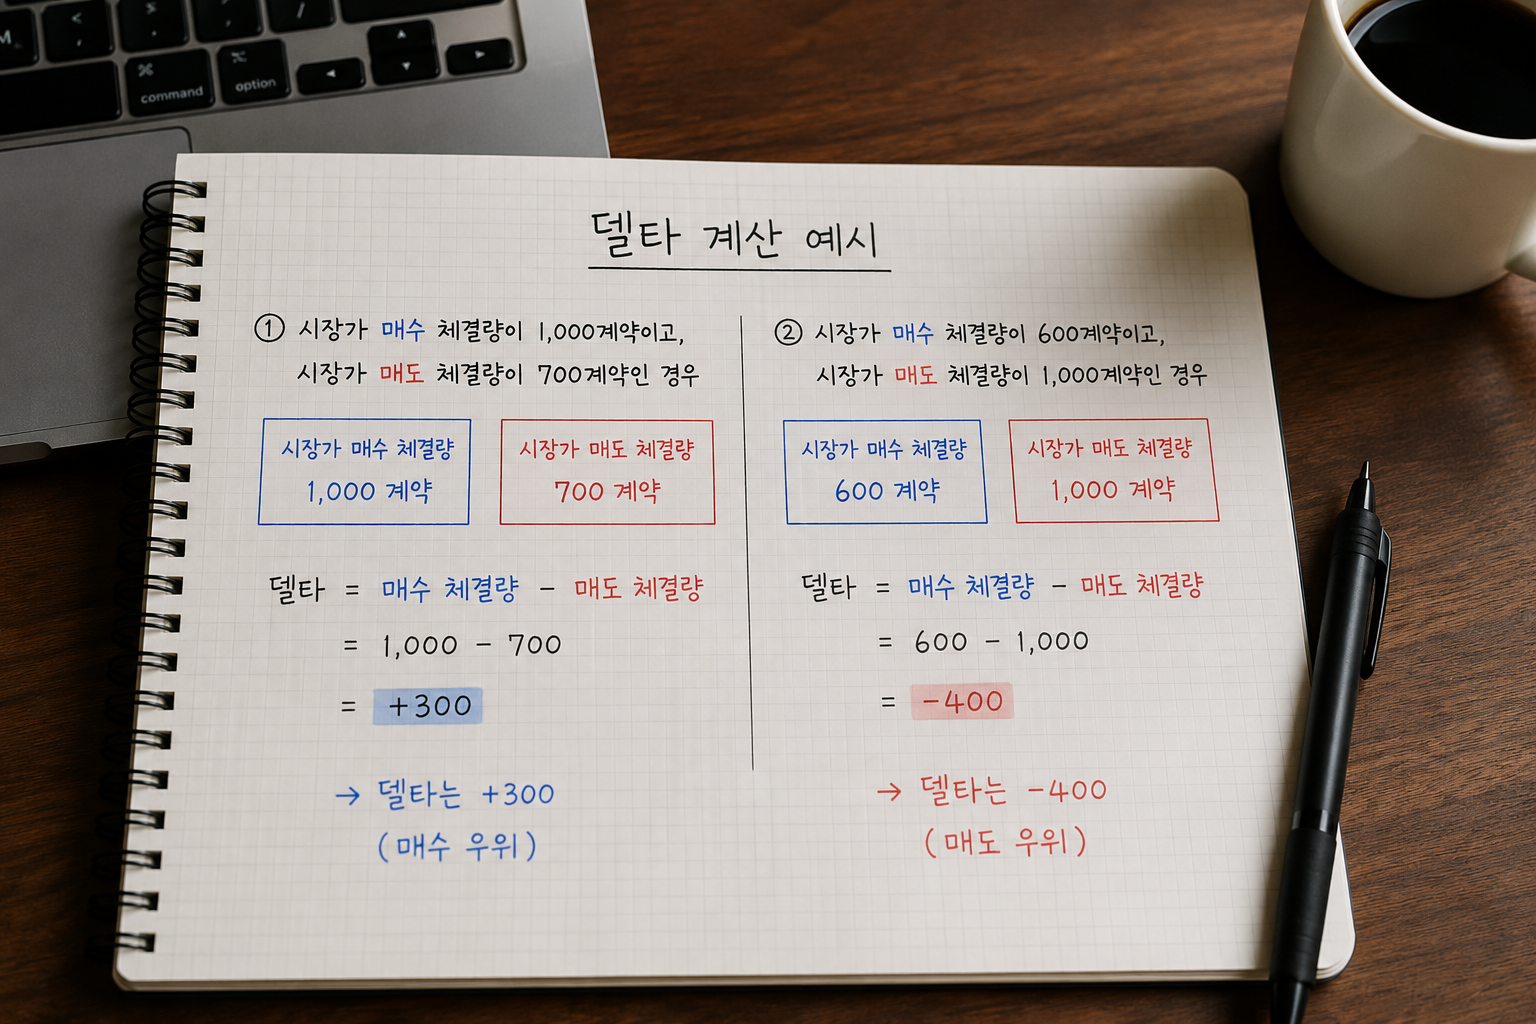 M
<
,
>
.
?
/
⌘
command
⌥
option
델타 계산 예시
① 시장가 매수 체결량이 1,000계약이고,
시장가 매도 체결량이 700계약인 경우
시장가 매수 체결량
1,000 계약
시장가 매도 체결량
700 계약
델타 = 매수 체결량 - 매도 체결량
= 1,000 - 700
= +300
→ 델타는 +300
(매수 우위)
② 시장가 매수 체결량이 600계약이고,
시장가 매도 체결량이 1,000계약인 경우
시장가 매수 체결량
600 계약
시장가 매도 체결량
1,000 계약
델타 = 매수 체결량 - 매도 체결량
= 600 - 1,000
= -400
→ 델타는 -400
(매도 우위)